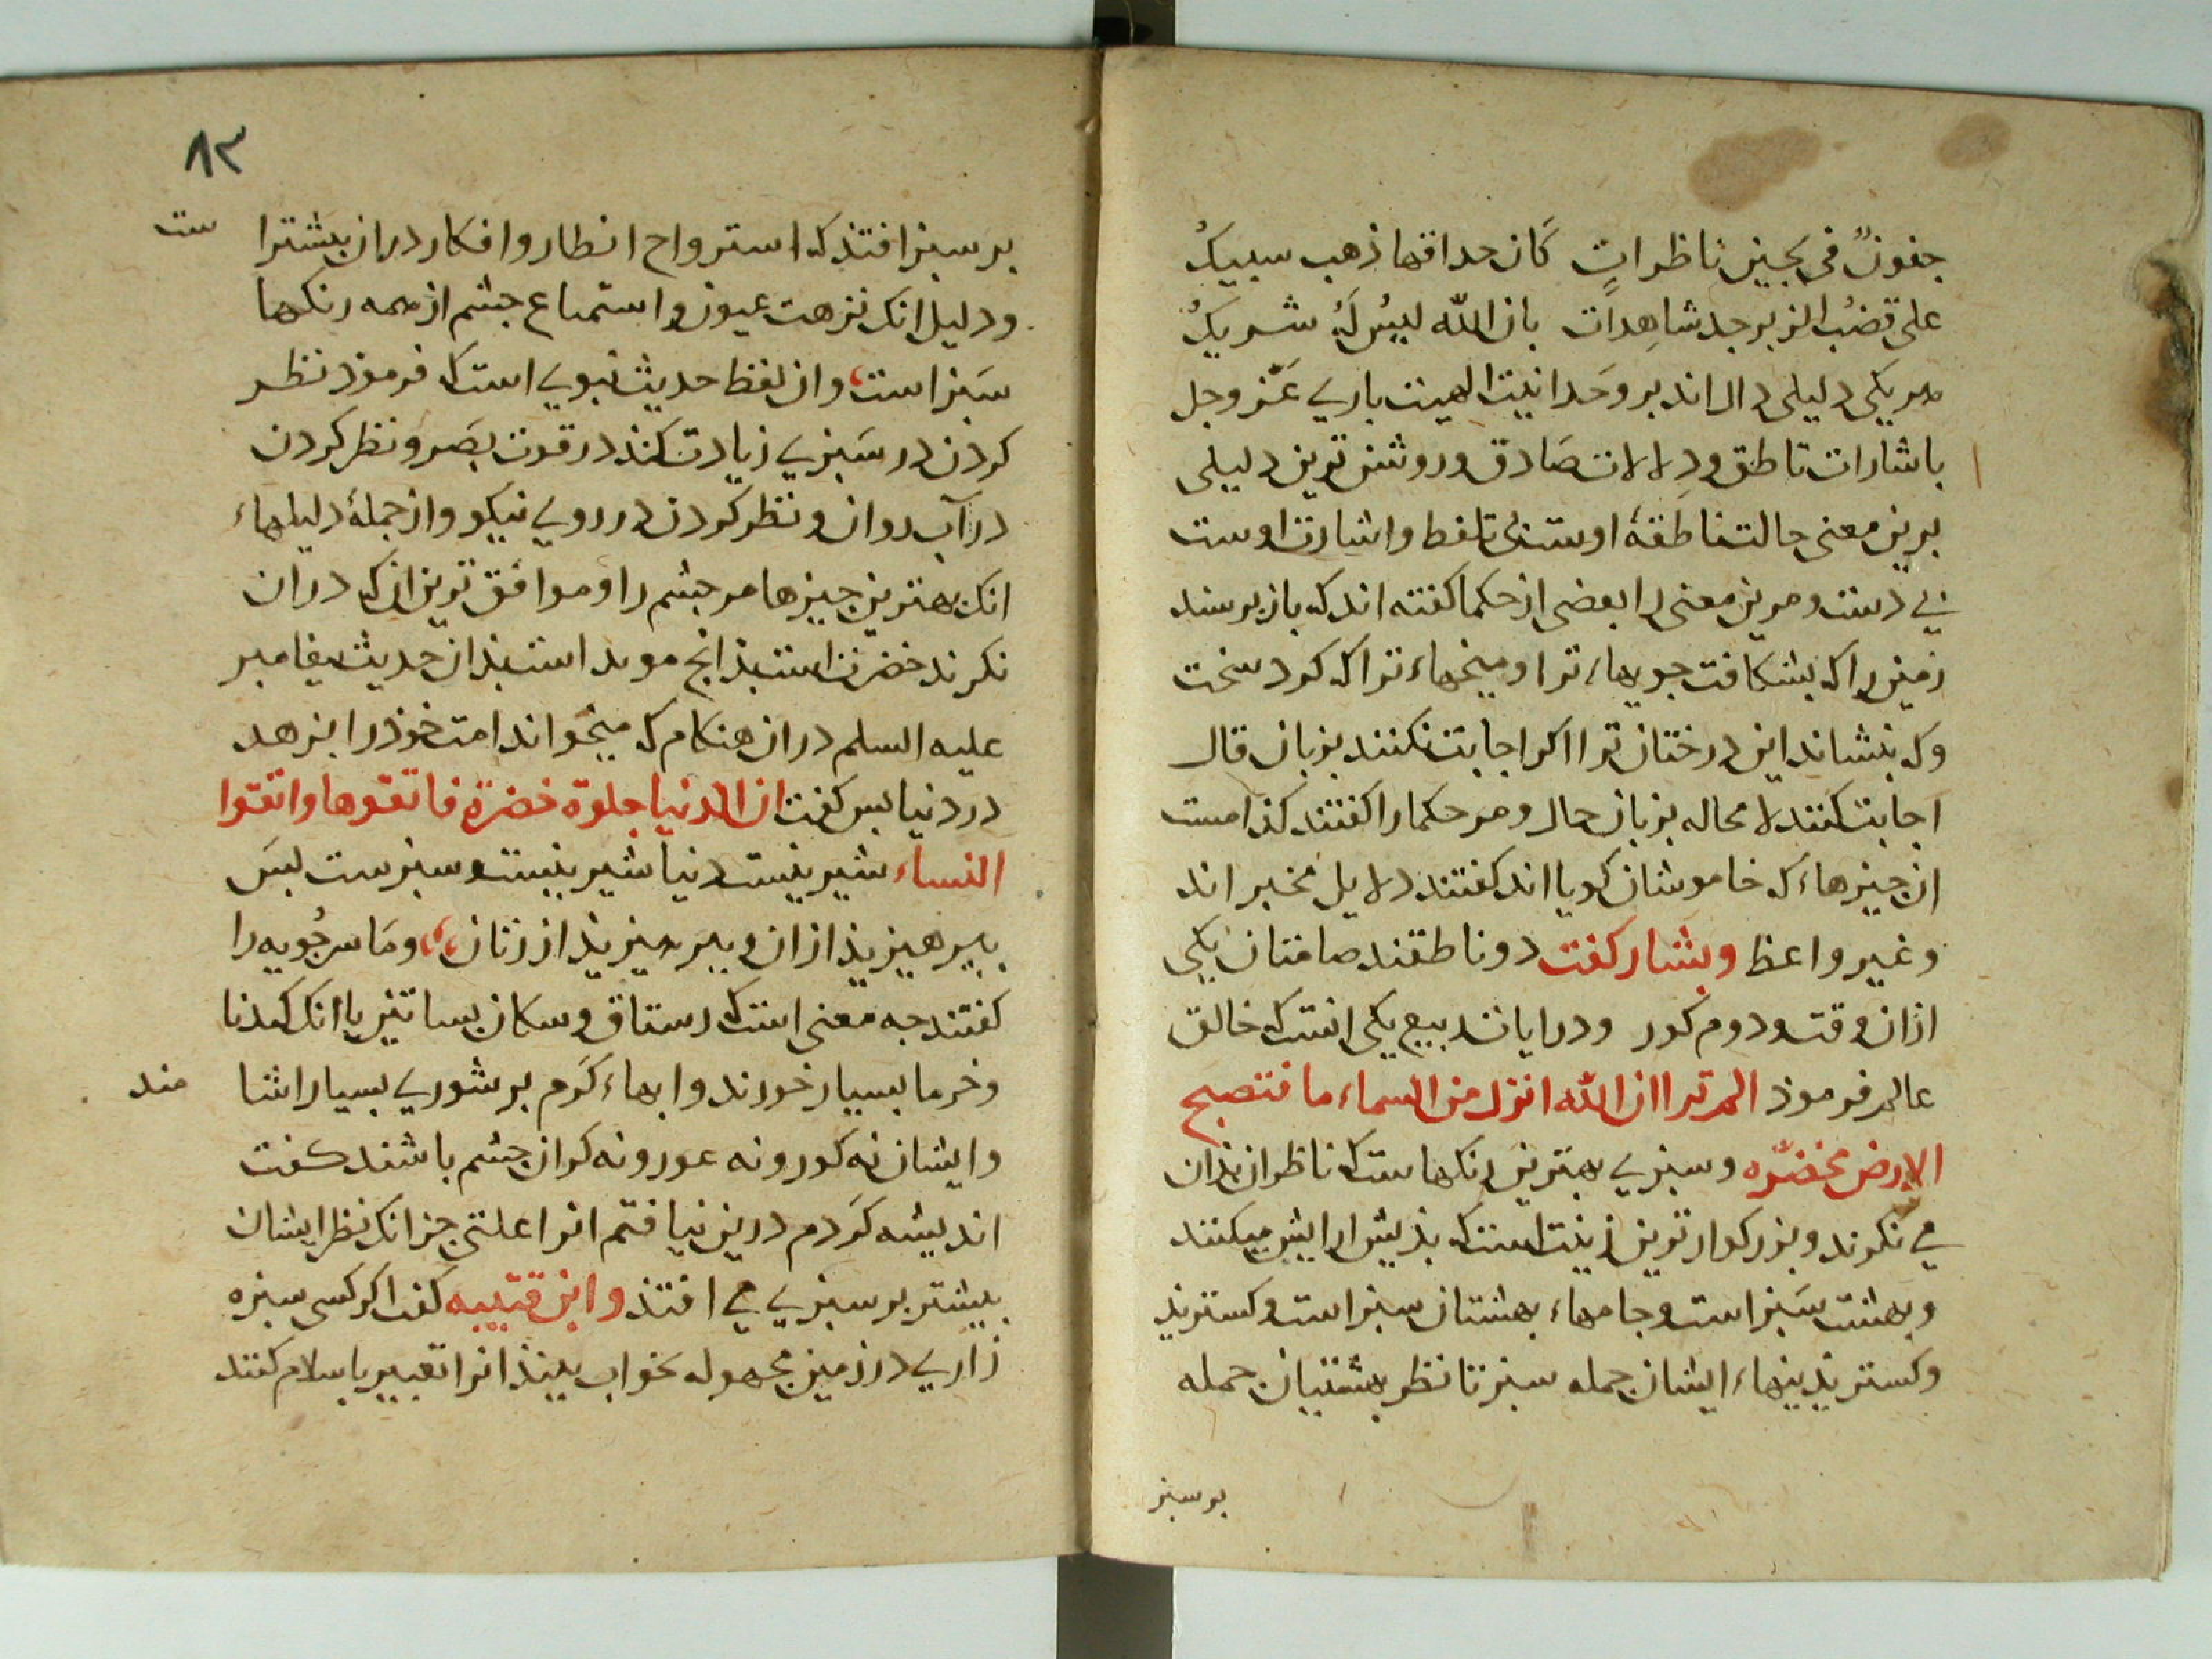 جفونٌ فی لجین ناظراتٍ کَان حداقها ذهب سبیکُ
علی قضُب الزبرجد شاهِداتٍ بان الله لیسَ لَهُ شریکُ
هر یکی دلیلی دال اند بر وحَدانیت الهیت باری عَز وجل
باشارات ناطق ودِلالات صَادق وروشن ترین دلیلی
برین معنی حالت ناطقهٔ اوست بی تلفط واشارت اوست
بی دست ومرین معنی را بعضی از حکما کفته اند که باز برسند
زمین را که بشکافت جویهاء ترا ومیخهاء ترا که کرد سخت
وکه بنشاند این درختان ترا اکر اجابت نکنند بزبان قال
اجابت کنند لا محاله بزبان حال ومر حکما را کفتند کذامست
از جیزهاء که خاموشان کویا اند کفتند دلایل مخبر اند
وغیر واعظ وبشار کفت دو ناطقند صامتان یکی
ازان وقت ودوم کور ودر ایات ربیع یکی انست که خالق
عالم فرموذ الم تر ان الله انزل من السماء ما فتصبح
الارض مخضرّه وسبزی بهترین رنکهاست که ناظران بذان
می نکرند وبزرکوارترین زینت است که بذیش ارایش میکنند
وبهشت سَبز است وجامهاء بهشتان سبز است وکسترید
وکستریدنیهاء ایشان جمله سبز تا نظر بهشتیان جمله
بر سبز
۸۳
بر سبز افتذ که استرواح انطار وافکار دران بیشترا ست
ودلیل انک نزهت عیون واستمتاع جشم از همه رنکها
سَبز است وان لفظ حدیث نبوی است که فرموذ نظر
کردن در سَبزی زیادت کند در قوت بصَر ونظر کردن
در آب روان ونظر کردن در روی نیکو واز جملهٔ دلیلهاء
انک بهترین جیزها مر جشم را وموافق ترین ان که دران
نکرند خضرت است بذانج موید است بذان حدیث بیغامبر
علیه السلم دران هنکام که میخواند امت خوذ را بزهد
در دنیا بس کفت ان الدنیا حلوة خضرة فاتقوها واتقوا
النساء شیرینیست دنیا شیرینیست وسبزست بسَ
ببرهیزیذ ازان وببرهیزیذ از زنان وماسرجُویه را
کفتند جه معنی است که رستاق وسکان بساتین با انک کندنا
وخرما بسیار خورند وابهاء کرَم بر شوری بسیار اشا مند
وایشان نه کور ونه عور ونه کران جشم باشند کفت
اندیشه کرَدم درین نیافتم انرا علتی جز انک نظر ایشان
بیشتر بر سبزی می افتذ وابن قتیبه کفت اکر کسی سبزه
زاری در زمین مجهوله بخواب بیند انرا تعبیر باسلام کنند